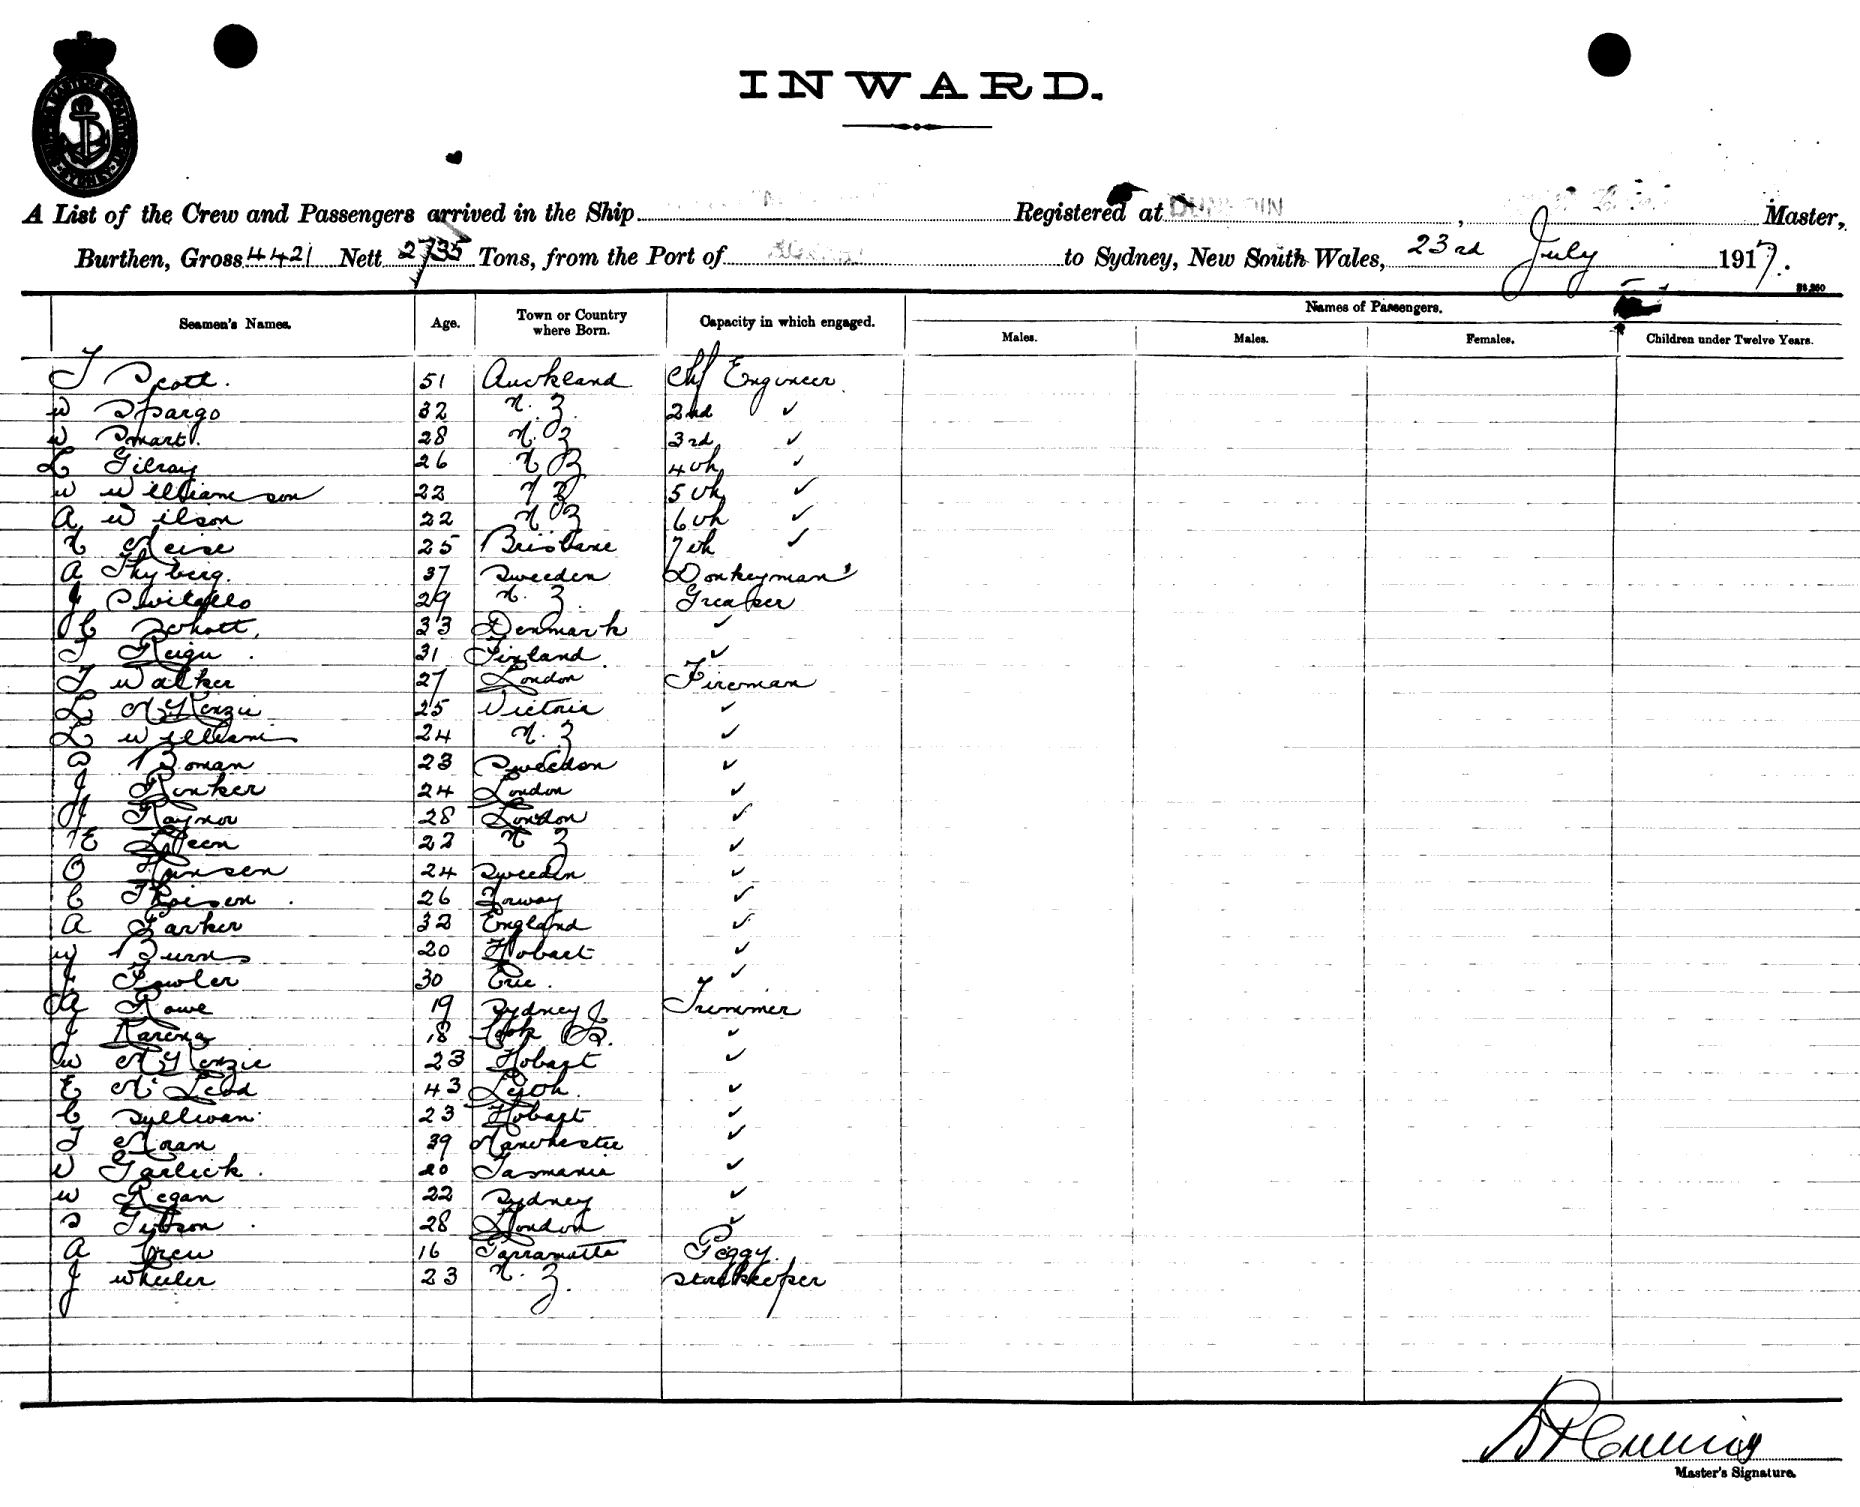 INWARD.
A List of the Crew and Passengers arrived in the Ship Registered at DUNEDIN , Master,
Burthen, Gross 4421 Nett 2735 Tons, from the Port of to Sydney, New South Wales, 23rd July 1917.
Names of Passengers.
Seamen's Names. Age. Town or Country where Born. Capacity in which engaged. Males. Males. Females. Children under Twelve Years.
T Scott. 51 Auckland Chf Engineer
W Spargo 32 N. Z. 2nd ✓
W Smart. 28 N. Z 3rd ✓
L Gilray 26 N Z 4th ✓
W Williamson 22 N Z 5th ✓
A Wilson 22 N Z 6th ✓
N Meise 25 Brisbane 7th ✓
A Thyberg. 37 Sweeden Donkeyman
J 29 N. Z. Greaser
C Schott. 33 Denmark ✓
T 31 Finland ✓
T Walker 27 London Fireman
L McKenzie 25 Victoria ✓
L Williams 24 N. Z ✓
S Boman 23 Sweedon ✓
J Ronker 24 London ✓
H Raynor 28 London ✓
E 22 N Z ✓
O Hansen 24 Sweeden ✓
C Thoisen 26 Norway ✓
A Parker 32 England ✓
W Burns 20 Hobart ✓
J Fowler 30 Erie. ✓
A Rowe 19 Sydney Trimmer
J Karena 18 Cook Is. ✓
W McKenzie 23 Hobart ✓
E McLeod 43 Leith. ✓
C Sullivan 23 Hobart ✓
T Moran 39 Manchester ✓
W Garlick. 20 Tasmania ✓
W Regan 22 Sydney ✓
S Gibson 28 London ✓
A Crew 16 Parramatta Peggy.
J Wheeler 23 N. Z. Storekeeper
Master's Signature.